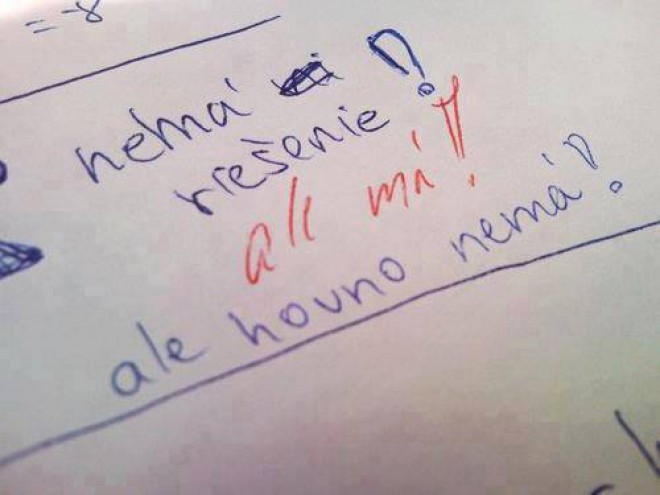 = -8
nemá !
riešenie
ale má!
ale hovno nemá!